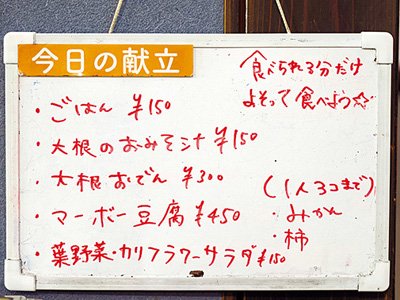 今日の献立
食べられる分だけ
よそって食べよう☆
・ごはん ¥150
・大根のおみそ汁 ¥150
・大根おでん ¥300
・マーボー豆腐 ¥450
・葉野菜・カリフラワーサラダ ¥150
(1人3コまで)
・みかん
・柿